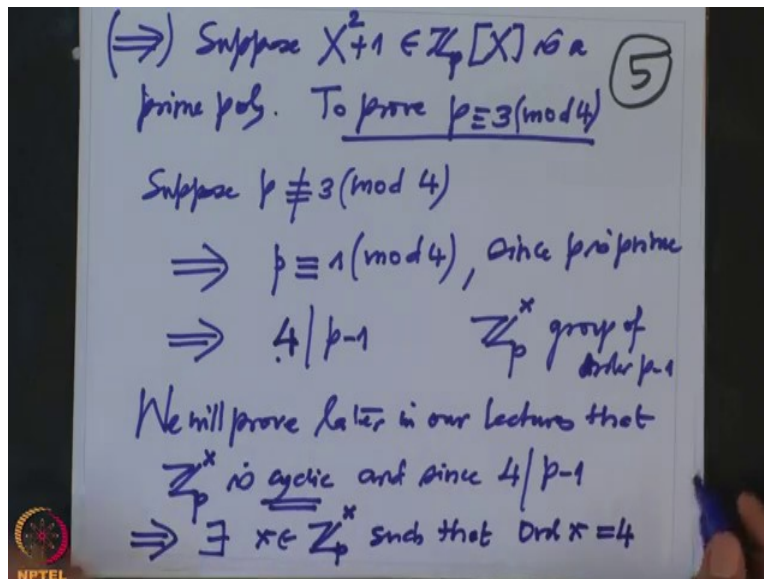 (⇒) Suppose X²+1 ∈ ℤ_p[X] is a
5
prime poly. To prove p≡3(mod 4)
Suppose p ≢ 3(mod 4)
⇒ p ≡ 1(mod 4), since p is prime
⇒ 4 | p-1 ℤ_p^× group of
order p-1
We will prove later in our lectures that
ℤ_p^× is cyclic and since 4 | p-1
⇒ ∃ x ∈ ℤ_p^× such that Ord x = 4
NPTEL